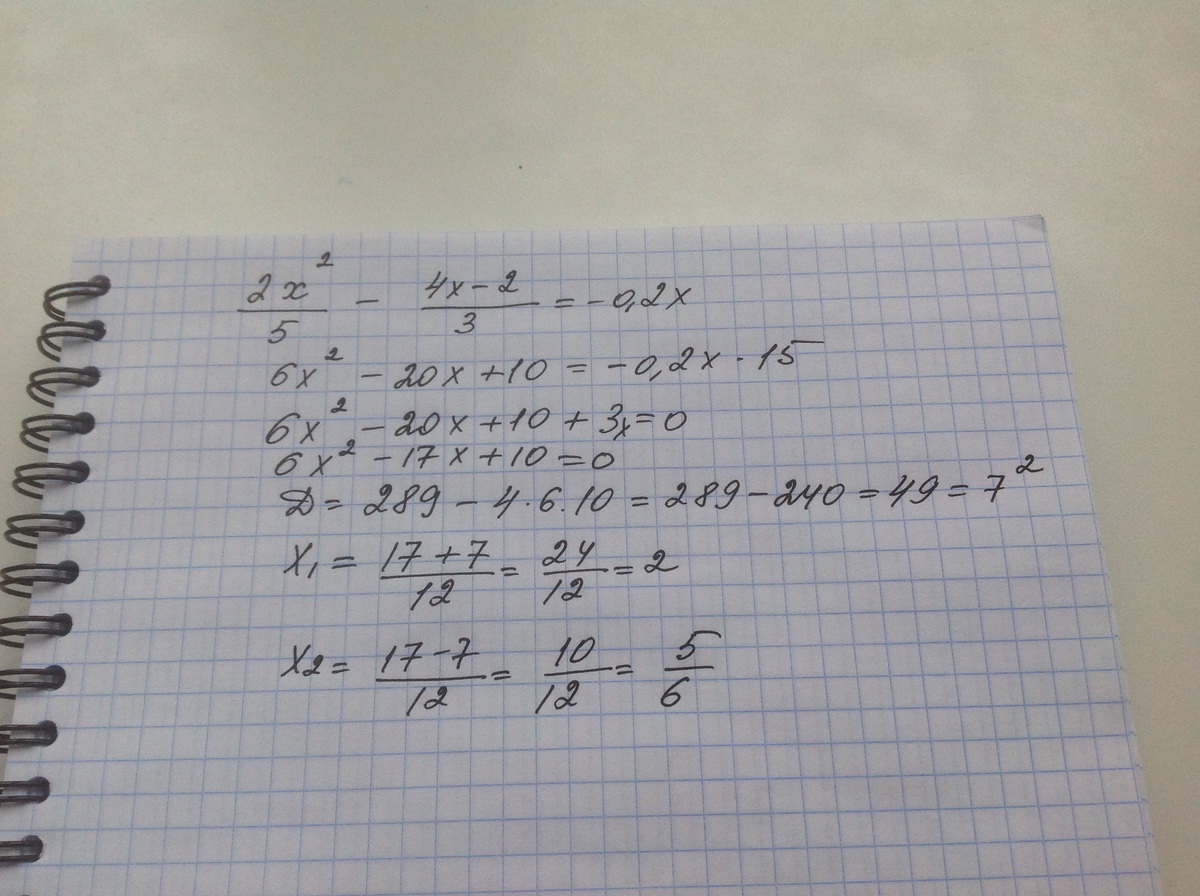 2x²/5 - (4x-2)/3 = -0,2x
6x² - 20x + 10 = -0,2x · 15
6x² - 20x + 10 + 3x = 0
6x² - 17x + 10 = 0
D = 289 - 4·6·10 = 289 - 240 = 49 = 7²
X₁ = (17+7)/12 = 24/12 = 2
X₂ = (17-7)/12 = 10/12 = 5/6